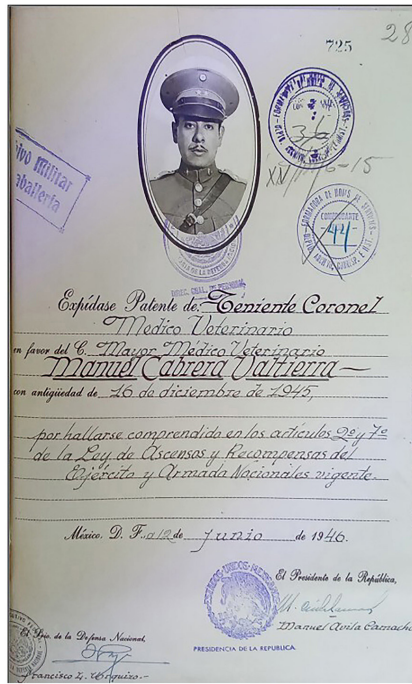 725
28
XV/III/6-15
Comandante
44
Archivo Militar
Caballería
DIREC. GRAL. DE PERSONAL
Expídase Patente de: Teniente Coronel
Medico Veterinario
en favor del C. Mayor Médico Veterinario
Manuel Cabrera Valtierra
con antigüedad de 16 de diciembre de 1945,
por hallarse comprendido en los artículos 2º y 7º
de la Ley de Ascensos y Recompensas del
Ejército y Armada Nacionales vigente.
México. D. F. a 12 de junio de 1946.
El Presidente de la República,
Manuel Avila Camacho
PRESIDENCIA DE LA REPUBLICA
El Srio. de la Defensa Nacional,
Francisco L. Urquizo.-